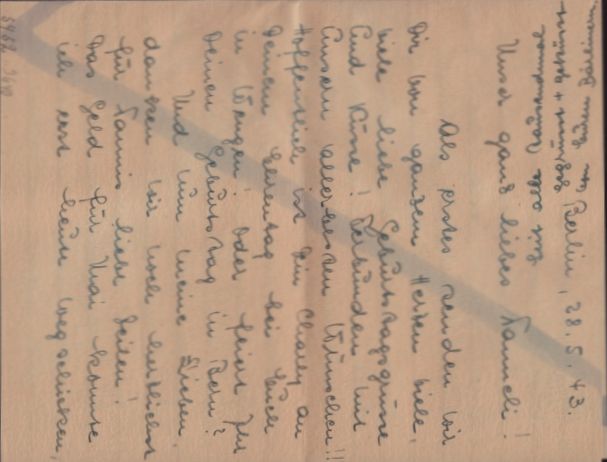 von Euren Berlinern.
Berlin, 28.5.43.
Unser ganz liebes Hanneli!
Als erstes senden wir
Dir von ganzem Herzen viele,
viele liebe Geburtstagsgrüsse
und Küsse! Verbunden mit
unsern allerbesten Wünschen!!
Hoffentlich ist Dein Charly an
Deinem Ehrentag bei Euch
in Wengen oder feiert Ihr
Deinen Geburtstag in Bern?
Und nun meine Lieben,
danken wir noch herzlichst
für Hannis liebe Zeilen!
Das Geld für Mai konnte
ich erst heute wegschicken,